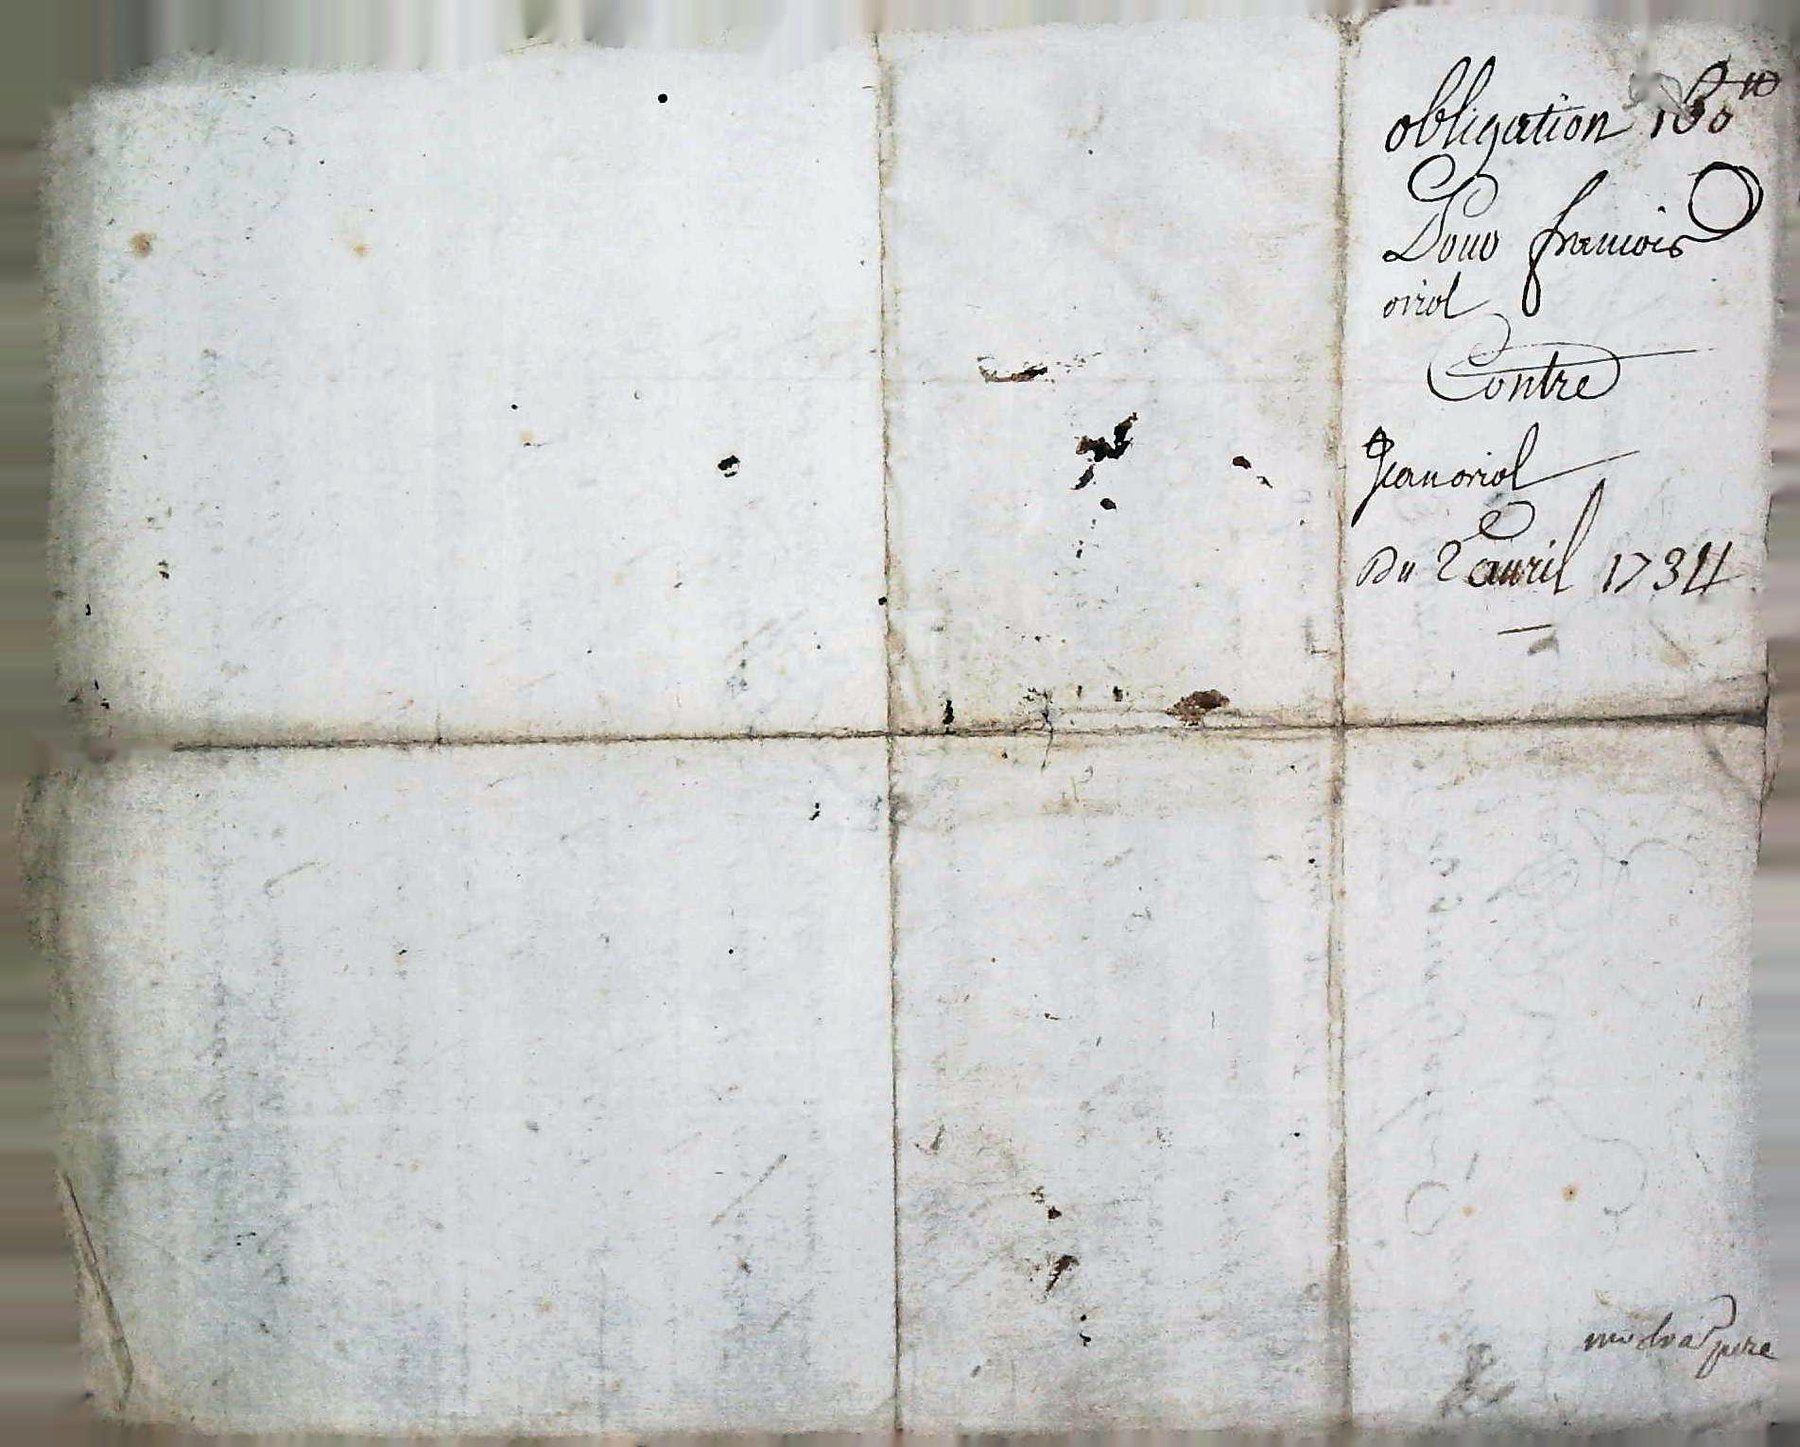 obligation 160 ₶
Pour francois
oriol
Contre
Jean oriol
Du 2 auril 1734